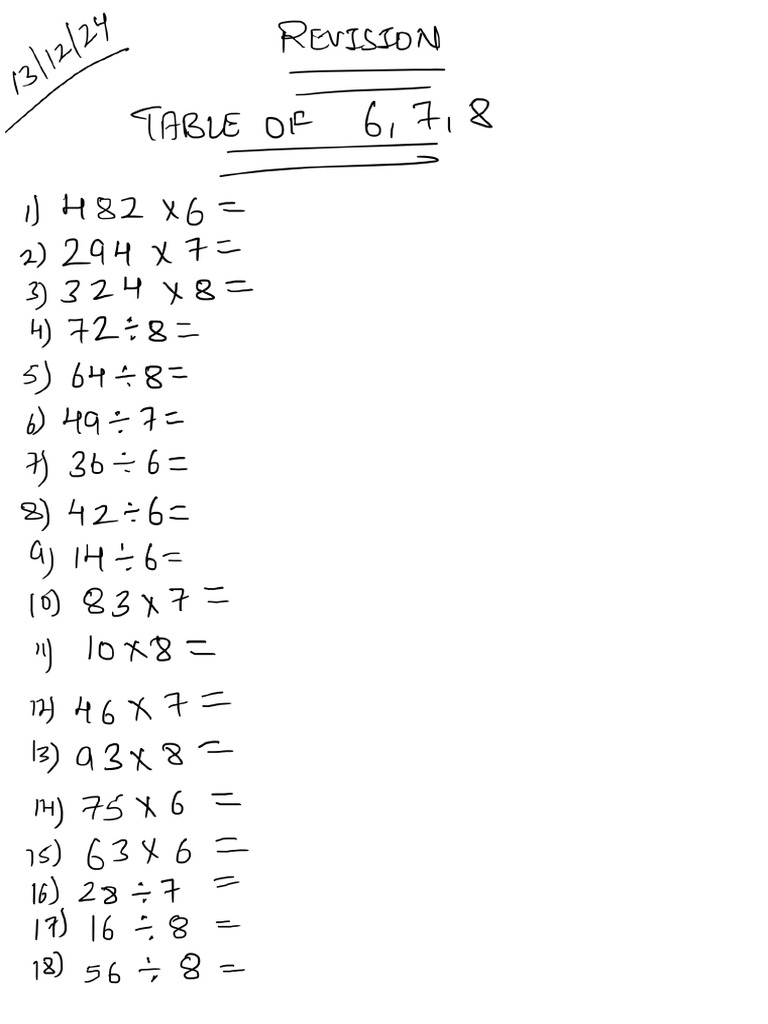 13/12/24
REVISION
TABLE OF 6, 7, 8
1) 482 × 6 =
2) 294 × 7 =
3) 324 × 8 =
4) 72 ÷ 8 =
5) 64 ÷ 8 =
6) 49 ÷ 7 =
7) 36 ÷ 6 =
8) 42 ÷ 6 =
9) 14 ÷ 6 =
10) 83 × 7 =
11) 10 × 8 =
12) 46 × 7 =
13) 93 × 8 =
14) 75 × 6 =
15) 63 × 6 =
16) 28 ÷ 7 =
17) 16 ÷ 8 =
18) 56 ÷ 8 =